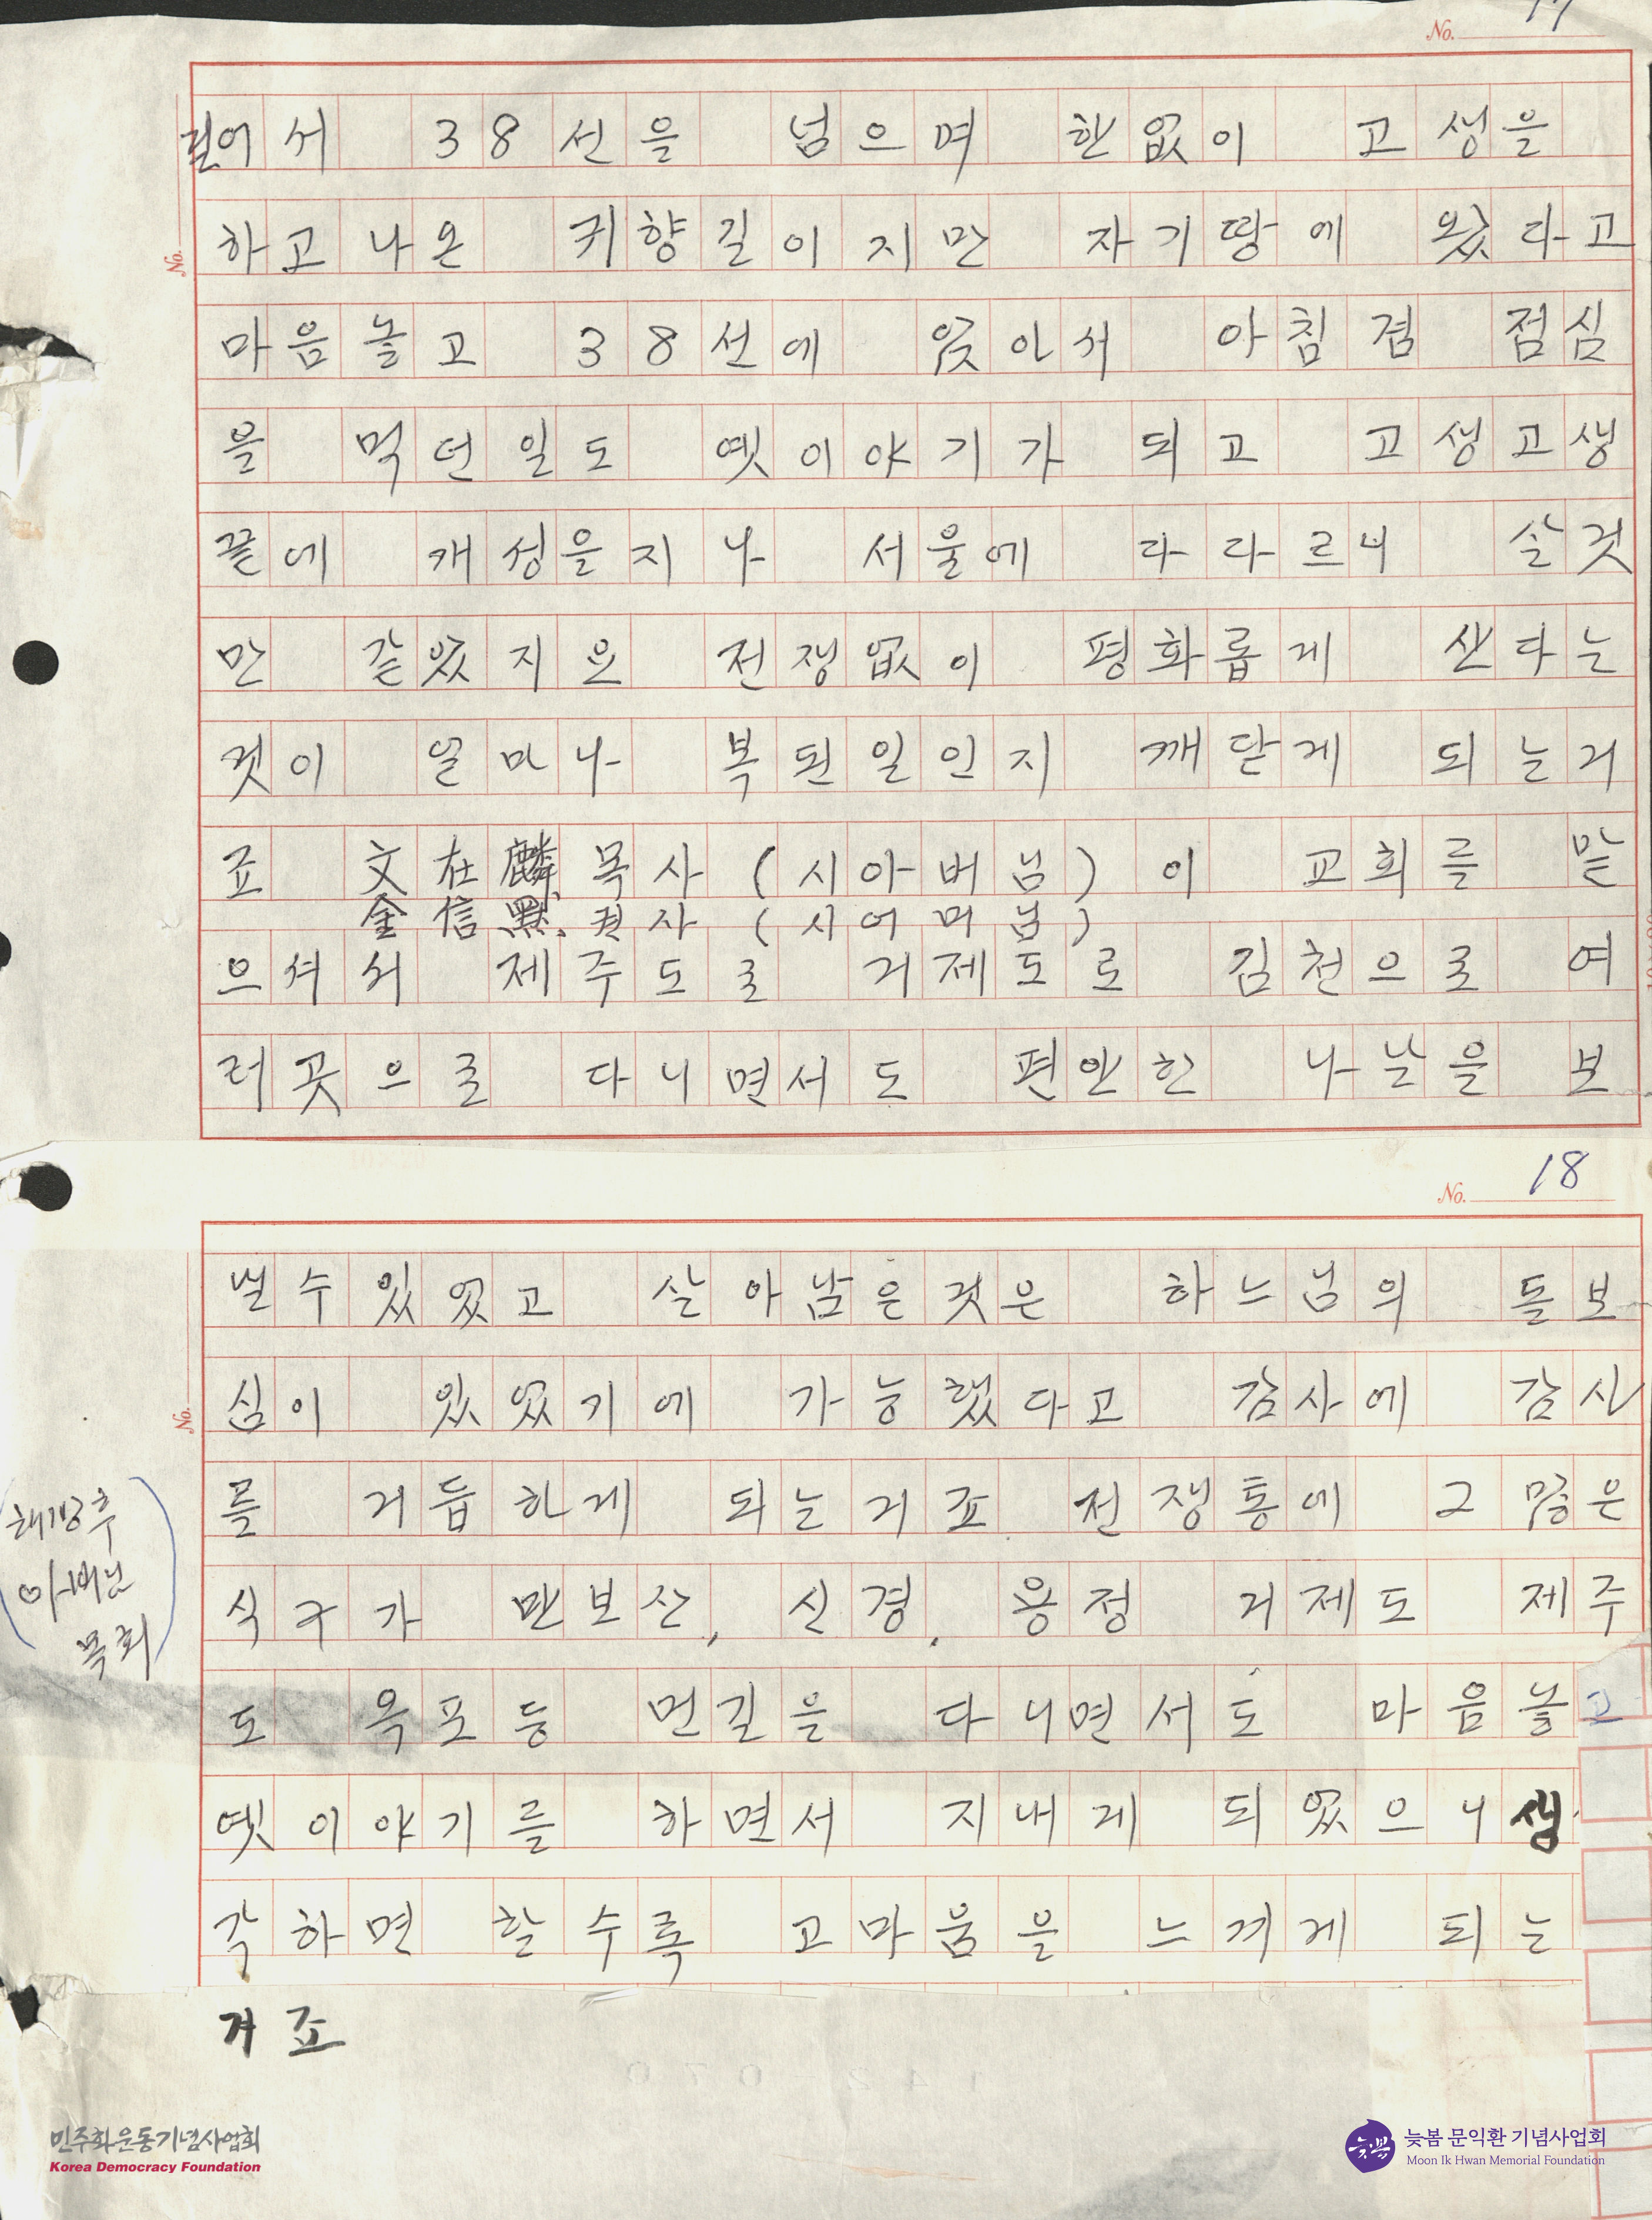 No. 17
걸어서 38선을 넘으며 한없이 고생을
하고 나온 귀향길이지만 자기땅에 왔다고
마음놓고 38선에 앉아서 아침겸 점심
을 먹던일도 옛이야기가 되고 고생고생
끝에 개성을지나 서울에 다다르니 살것
만 같았지요 전쟁없이 평화롭게 산다는
것이 얼마나 복된일인지 깨닫게 되는거
죠 文在麟목사(시아버님)이 교회를 맡
金信黙、권사(시어머님)
으셔서 제주도로 거제도로 김천으로 여
러곳으로 다니면서도 편안한 나날을 보
No.
No. 18
낼수있었고 살아남은것은 하느님의 돌보
심이 있었기에 가능했다고 감사에 감사
를 거듭하게 되는거죠 전쟁통에 그 많은
식구가 만보산, 신경, 용정 거제도 제주
도 옥포등 먼길을 다니면서도 마음놓고
옛이야기를 하면서 지내게 되었으니 생
각하면 할수록 고마움을 느끼게 되는
거죠
No.
(해방후
아버님
목회)
민주화운동기념사업회
Korea Democracy Foundation
늦봄
늦봄 문익환 기념사업회
Moon Ik Hwan Memorial Foundation